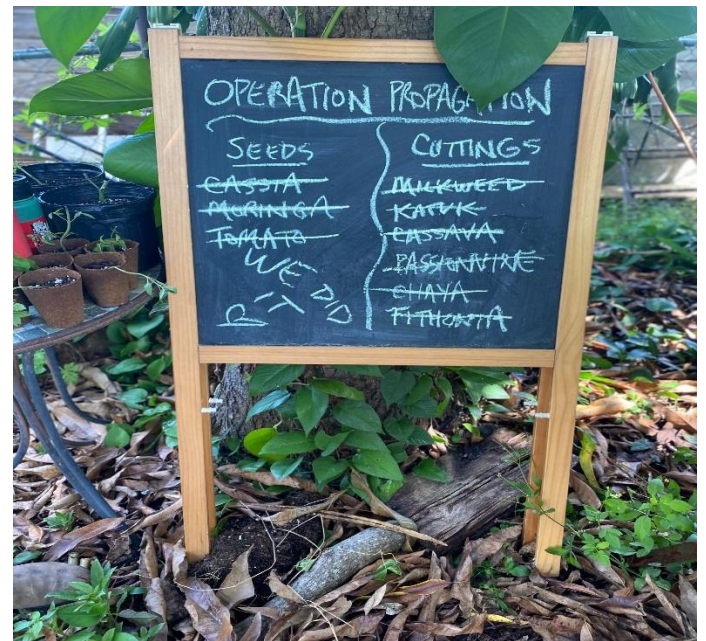 OPERATION PROPAGATION
SEEDS
CASSIA
MORINGA
TOMATO
WE DID
IT
CUTTINGS
MILKWEED
KATUK
CASSAVA
PASSIONVINE
CHAYA
TITHONIA